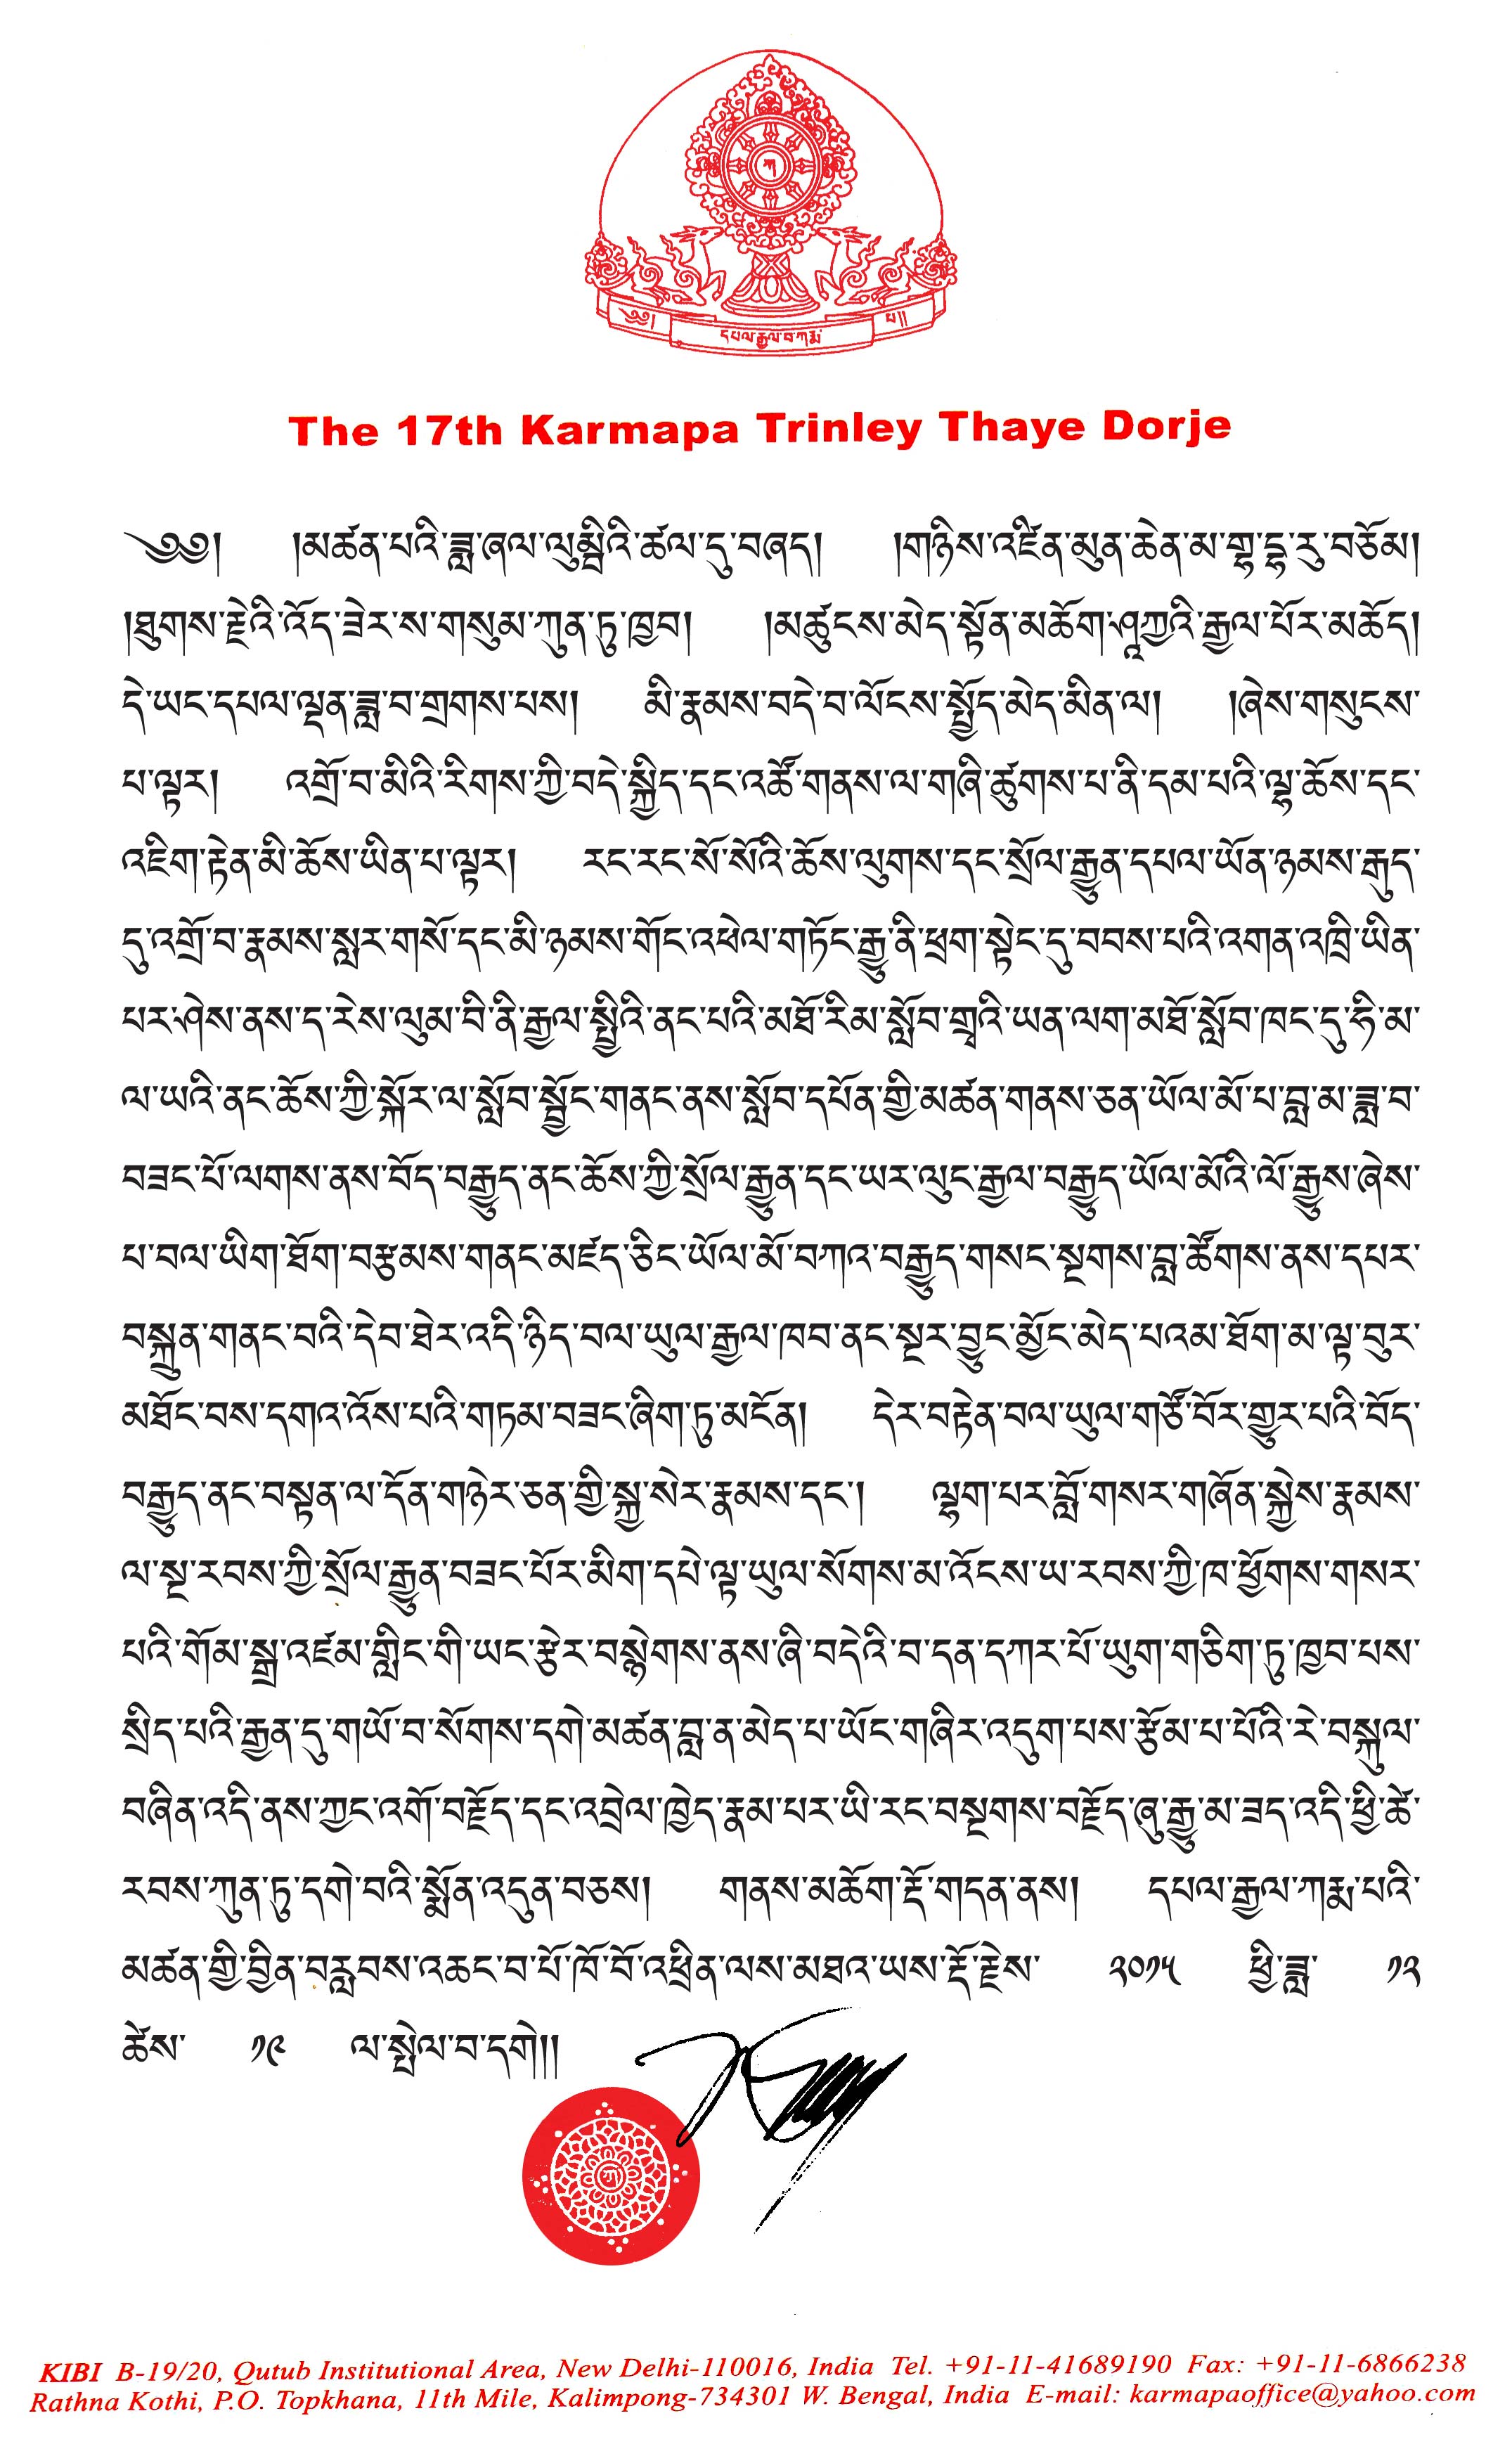 ༄༅། དཔལ་རྒྱལ་བ་ཀརྨ པ།།
The 17th Karmapa Trinley Thaye Dorje
༄༅། །མཚན་པའི་ཟླ་ཞལ་ལུམྦིའི་ཚལ་དུ་བཞད། །གཉིས་འཛིན་མུན་ཆེན་མ་གྷ་དྷ་རུ་བཅོམ།
།ཐུགས་རྗེའི་འོད་ཟེར་ས་གསུམ་ཀུན་ཏུ་ཁྱབ། །མཚུངས་མེད་སྟོན་མཆོག་ཤཱཀྱའི་རྒྱལ་པོར་མཆོད།
དེ་ཡང་དཔལ་ལྡན་ཟླ་བ་གྲགས་པས། མི་རྣམས་བདེ་བ་ལོངས་སྤྱོད་མེད་མིན་ལ། །ཞེས་གསུངས་
པ་ལྟར། འགྲོ་བ་མིའི་རིགས་ཀྱི་བདེ་སྐྱིད་དང་འཚོ་གནས་ལ་གཞི་ཚུགས་པ་ནི་དམ་པའི་ལྷ་ཆོས་དང་
འཇིག་རྟེན་མི་ཆོས་ཡིན་པ་ལྟར། རང་རང་སོ་སོའི་ཆོས་ལུགས་དང་སྲོལ་རྒྱུན་དཔལ་ཡོན་ཉམས་རྒུད་
དུ་འགྲོ་བ་རྣམས་སླར་གསོ་དང་མི་ཉམས་གོང་འཕེལ་གཏོང་རྒྱུ་ནི་ཕྲག་སྟེང་དུ་བབས་པའི་འགན་འཁྲི་ཡིན་
པར་ཤེས་ནས་ད་རེས་ལུམ་བི་ནི་རྒྱལ་སྤྱིའི་ནང་པའི་མཐོ་རིམ་སློབ་གྲྭའི་ཡན་ལག་མཐོ་སློབ་ཁང་དུ་ཧི་མ་
ལ་ཡའི་ནང་ཆོས་ཀྱི་སྐོར་ལ་སློབ་སྦྱོང་གནང་ནས་སློབ་དཔོན་གྱི་མཚན་གནས་ཅན་ཡོལ་མོ་པ་བླ་མ་ཟླ་བ་
བཟང་པོ་ལགས་ནས་བོད་བརྒྱུད་ནང་ཆོས་ཀྱི་སྲོལ་རྒྱུན་དང་ཡར་ལུང་རྒྱལ་བརྒྱུད་ཡོལ་མོའི་ལོ་རྒྱུས་ཞེས་
པ་བལ་ཡིག་ཐོག་བརྩམས་གནང་མཛད་ཅིང་ཡོལ་མོ་བཀའ་བརྒྱུད་གསང་སྔགས་བླ་ཚོགས་ནས་དཔར་
བསྐྲུན་གནང་བའི་དེབ་ཐེར་འདི་ཉིད་བལ་ཡུལ་རྒྱལ་ཁབ་ནང་སྔར་བྱུང་མྱོང་མེད་པའམ་ཐོག་མ་ལྟ་བུར་
མཐོང་བས་དགའ་འོས་པའི་གཏམ་བཟང་ཞིག་ཏུ་མངོན། དེར་བརྟེན་བལ་ཡུལ་གཙོ་བོར་གྱུར་པའི་བོད་
བརྒྱུད་ནང་བསྟན་ལ་དོན་གཉེར་ཅན་གྱི་སྐྱ་སེར་རྣམས་དང་། ལྷག་པར་བློ་གསར་གཞོན་སྐྱེས་རྣམས་
ལ་སྔ་རབས་ཀྱི་སྲོལ་རྒྱུན་བཟང་པོར་མིག་དཔེ་ལྟ་ཡུལ་སོགས་མ་འོངས་ཡ་རབས་ཀྱི་ཁ་ཕྱོགས་གསར་
པའི་གོམ་སྒྲ་འཛམ་གླིང་གི་ཡང་རྩེར་བསྙེགས་ནས་ཞི་བདེའི་བ་དན་དཀར་པོ་ཡུག་གཅིག་ཏུ་ཁྱབ་པས་
སྲིད་པའི་རྒྱན་དུ་གཡོ་བ་སོགས་དགེ་མཚན་བླ་ན་མེད་པ་ཡོང་གཞིར་འདུག་པས་རྩོམ་པ་པོའི་རེ་བསྐུལ་
བཞིན་འདི་ནས་ཀྱང་འགོ་བརྗོད་དང་འབྲེལ་ཁྱེད་རྣམ་པར་ཡི་རང་བསྔགས་བརྗོད་ཞུ་རྒྱུ་མ་ཟད་འདི་ཕྱི་ཚེ་
རབས་ཀུན་ཏུ་དགེ་བའི་སྨོན་འདུན་བཅས། གནས་མཆོག་རྡོ་གདན་ནས། དཔལ་རྒྱལ་ཀརྨ་པའི་
མཚན་གྱི་བྱིན་བརླབས་འཆང་བ་པོ་ཁོ་བོ་འཕྲིན་ལས་མཐའ་ཡས་རྡོ་རྗེས་ ༢༠༡༥ ཕྱི་ཟླ་ ༡༢
ཚེས་ ༡༩ ལ་སྤེལ་བ་དགེ།།
KIBI B-19/20, Qutub Institutional Area, New Delhi-110016, India Tel. +91-11-41689190 Fax: +91-11-6866238
Rathna Kothi, P.O. Topkhana, 11th Mile, Kalimpong-734301 W. Bengal, India E-mail: karmapaoffice@yahoo.com